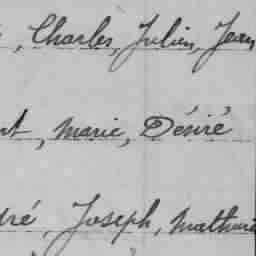 , Charles, Julien, Jean
nt, Marie, Désiré
dré, Joseph, Mathurin